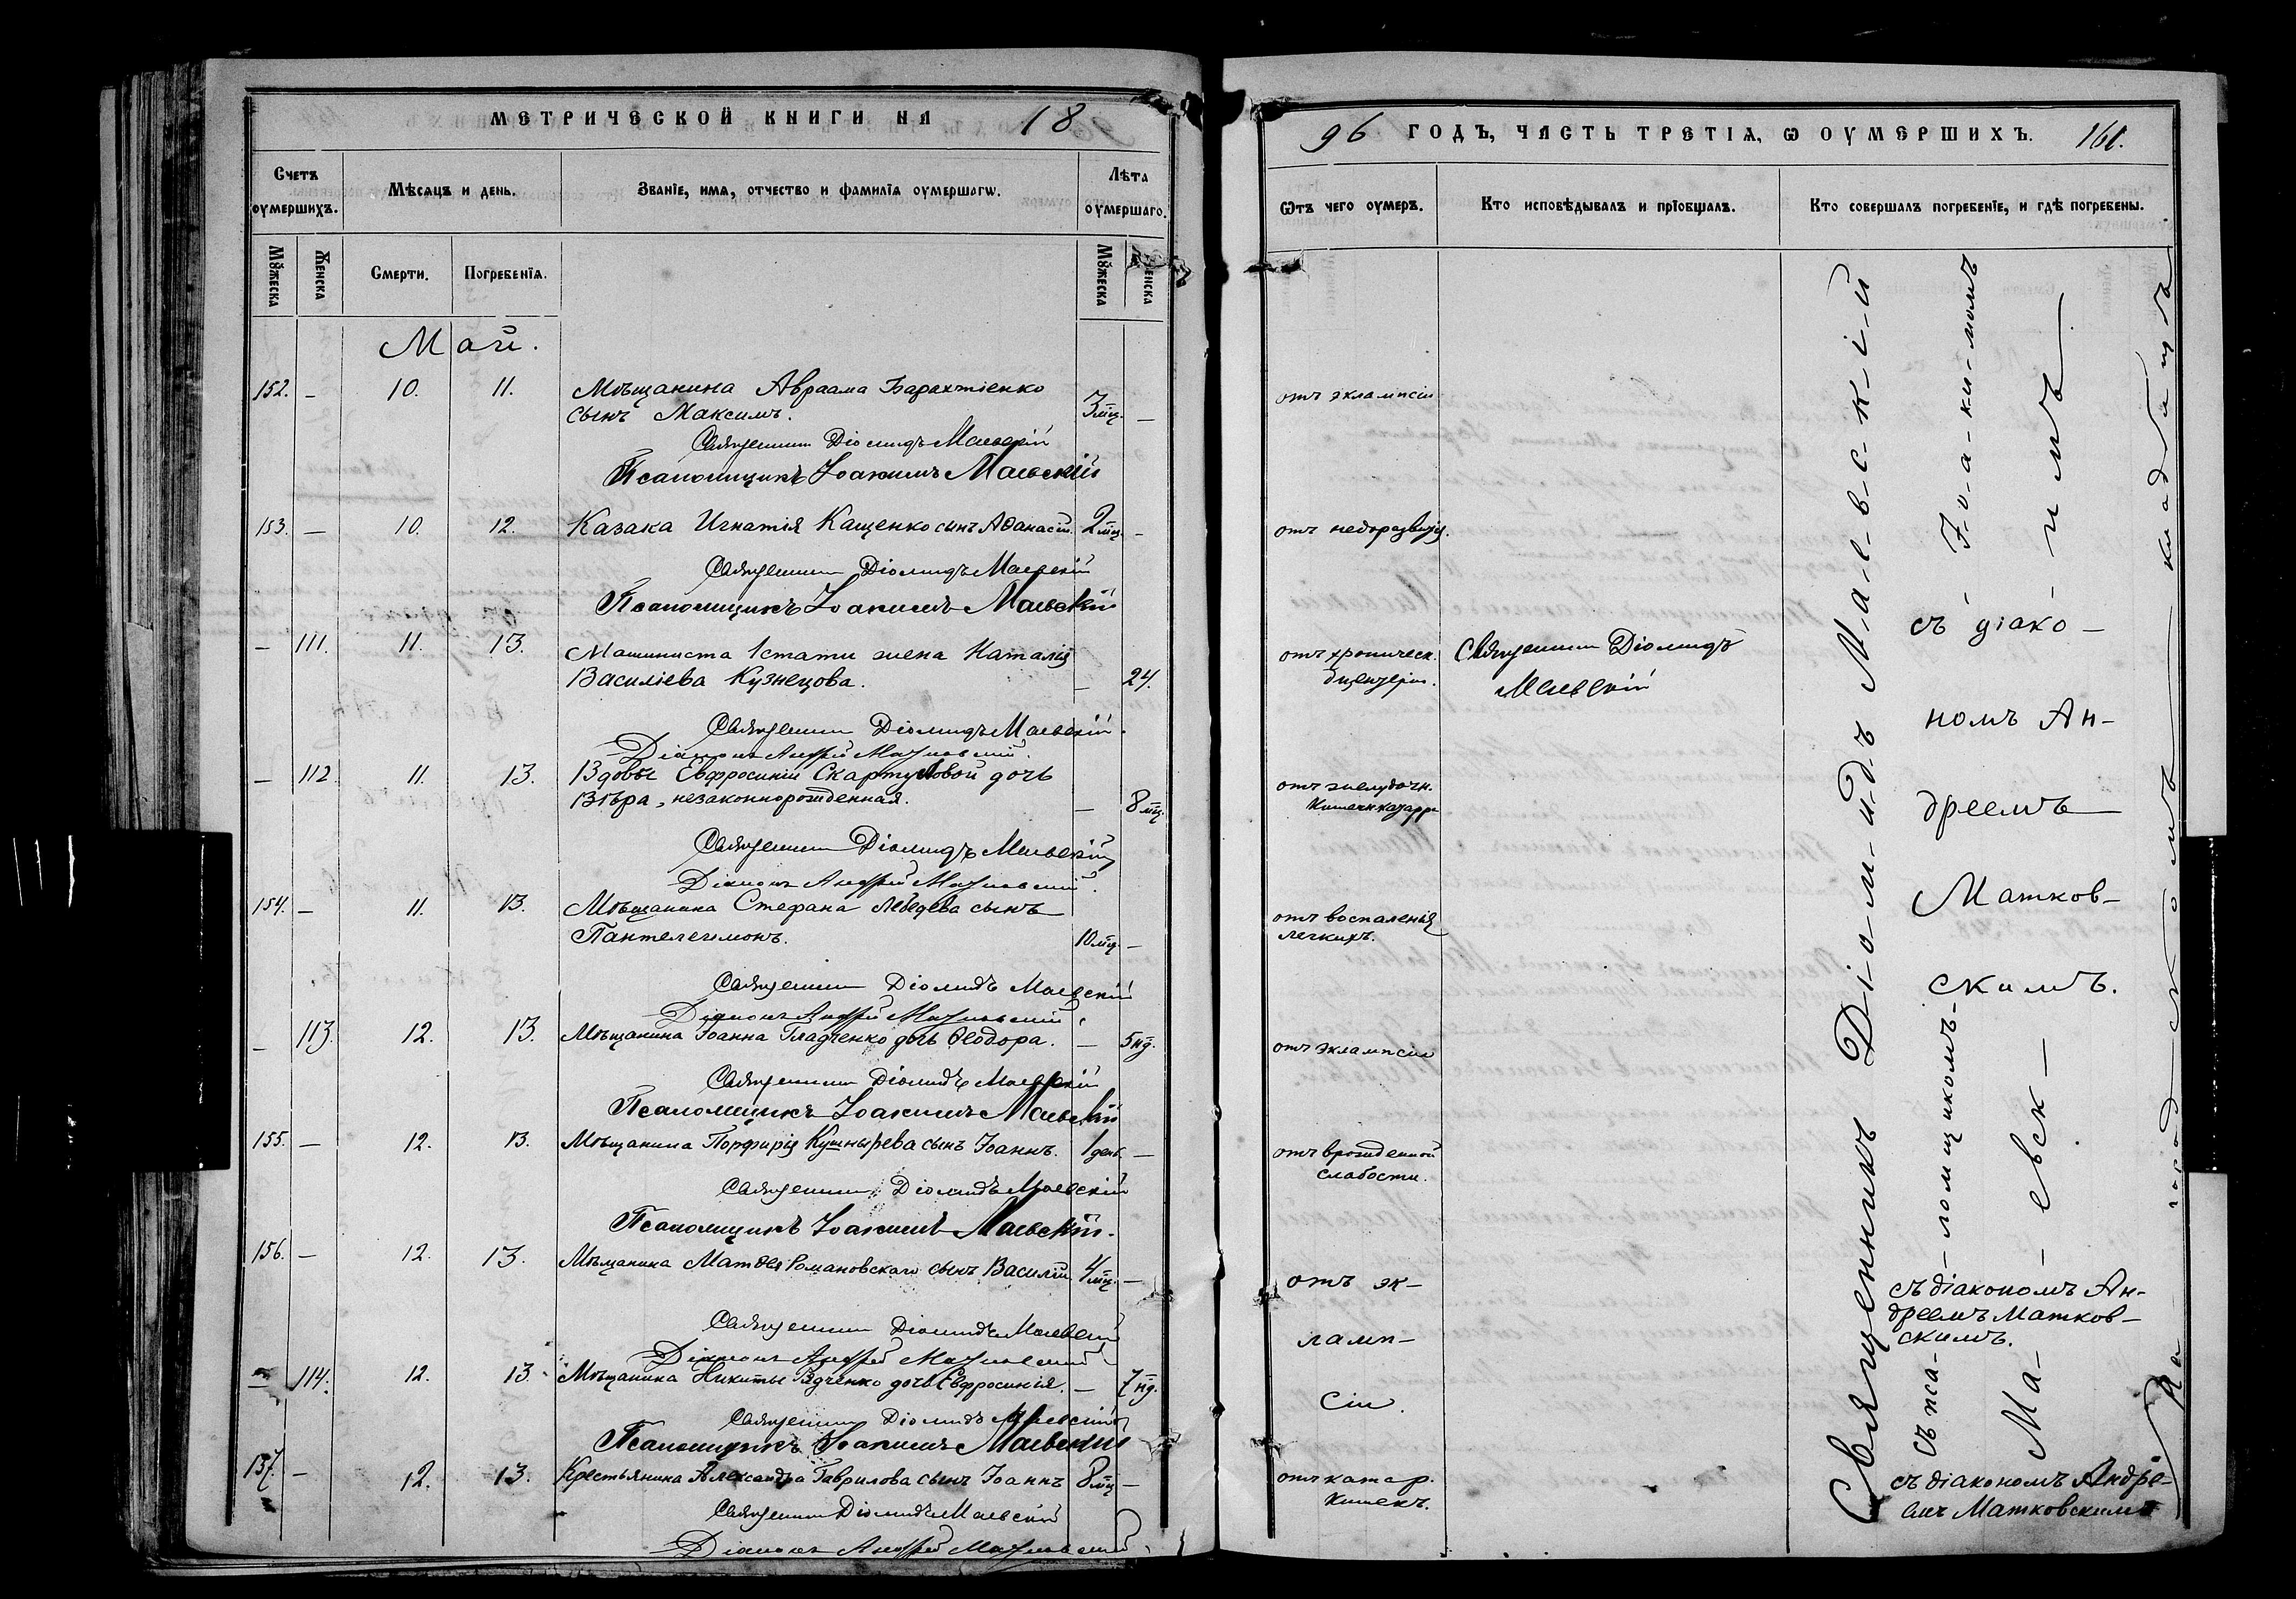 МЕТРИЧЕСКОЙ КНИГИ НА 18
Счетъ оумершихъ.
Мѣсяцъ и день.
Званіе, имя, отчество и фамилія оумершагѡ.
Лѣта оумершаго.
Мꙋжеска
Женска
Смерти.
Погребенія.
Мꙋжеска
Женска
Май.
152. — 10. 11. Мѣщанина Авраама Барахтіенко
сынъ Максимъ. 3 мц. —
Священникъ Діомидъ Маевскій
Псаломщикъ Іоакимъ Маевскій
153. — 10. 12. Казака Игнатія Кащенко сынъ Аѳанасій. 2 мц. —
Священникъ Діомидъ Маевскій
Псаломщикъ Іоакимъ Маевскій
— 111. 11. 13. Машиниста жена Наталія
Василіева Кузнецова. — 24.
Священникъ Діомидъ Маевскій.
Діаконъ Андрей Матковскій.
— 112. 11. 13. Вдовы Евфросиніи Скартуловой дочь
Вѣра, незаконнорожденная. — 8 мц.
Священникъ Діомидъ Маевскій
Діаконъ Андрей Матковскій.
154. — 11. 13. Мѣщанина Стефана Лебедева сынъ
Пантелеимонъ. 10 мц. —
Священникъ Діомидъ Маевскій
Діаконъ Андрей Матковскій.
— 113. 12. 13. Мѣщанина Іоанна Гладченко дочь Ѳеодора. — 5 нд.
Священникъ Діомидъ Маевскій
Псаломщикъ Іоакимъ Маевскій
155. — 12. 13. Мѣщанина Порфирія Кушнырева сынъ Іоаннъ. 1 день. —
Священникъ Діомидъ Маевскій
Псаломщикъ Іоакимъ Маевскій.
156. — 12. 13. Мѣщанина Матѳея Романовскаго сынъ Василій 4 мц. —
Священникъ Діомидъ Маевскій
Діаконъ Андрей Матковскій
— 114. 12. 13. Мѣщанина Никиты дочь Евфросинія. — 7 нд.
Священникъ Діомидъ Маевскій
Псаломщикъ Іоакимъ Маевскій
157. — 12. 13. Крестьянина Александра Гаврилова сынъ Іоаннъ 8 мц —
Священникъ Діомидъ Маевскій
Діаконъ Андрей Матковскій
96 ГОДЪ, ЧАСТЬ ТРЕТІЯ, Ѡ ОУМЕРШИХЪ. 161.
Ѿтъ чего оумеръ.
Кто исповѣдывалъ и пріобщалъ.
Кто совершалъ погребеніе, и гдѣ погребены.
отъ экламсіи
отъ недоразвит.
отъ хроническ.
дизентеріи.
Священникъ Діомидъ
Маевскій
отъ желудочн.
Кишечн. катарра
отъ воспаленія
легкихъ.
отъ эклампсіи
отъ врожденной
слабости.
отъ эк-
ламп-
сіи.
отъ катар.
кишекъ.
Священникъ Діо-ми-дъ Ма-е-в-с-к-і-й
съ пса-ломщикомъ- Іо-а-ки-момъ
Ма-евск-имъ.
съ діако-
номъ Ан-
дреемъ
Матков-
скимъ.
съ діакономъ Ан-
дреемъ Матков-
скимъ.
съ діакономъ Андре-
емъ Матковскимъ
На городскомъ кладбищѣ.